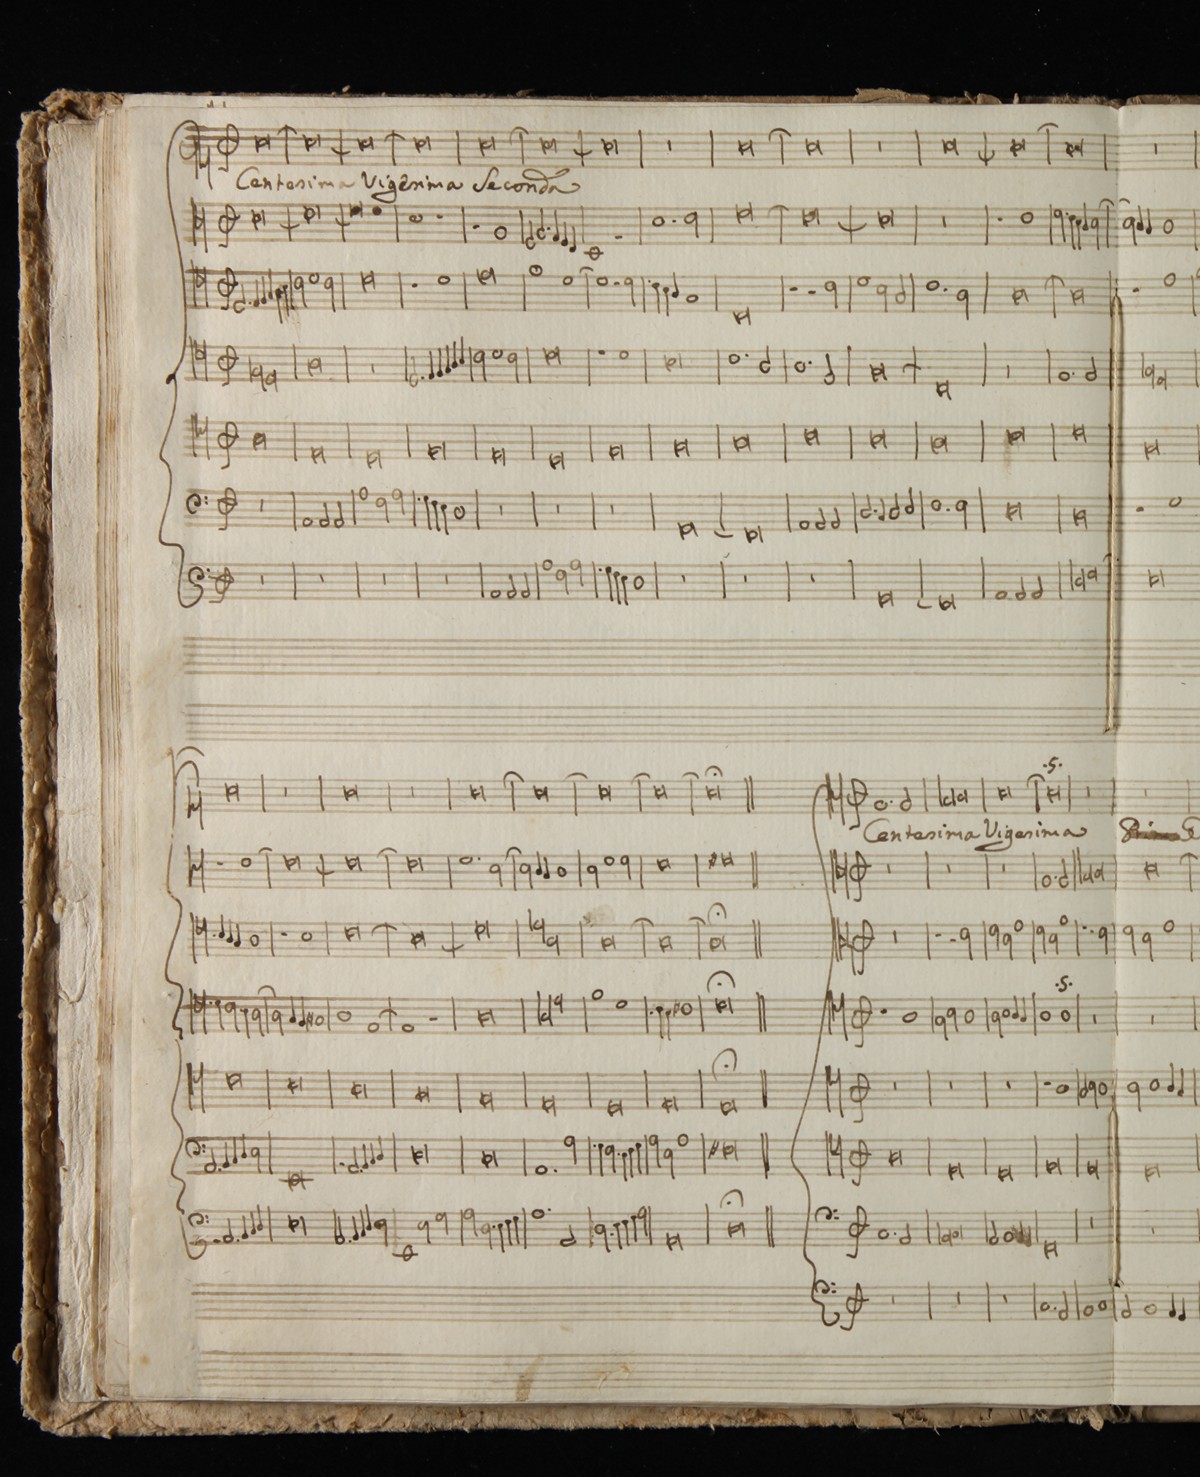 Centesima Vigesima Seconda
.5.
Centesima Vigesima
.5.